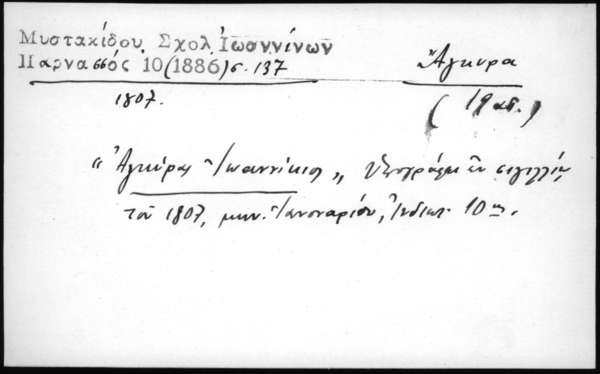 Μυστακίδου, Σχολ Ἰωαννίνων
Παρνασσός 10 (1886) σ. 137
Ἄγκυρα
1807.
(19 αι.)
"Ἀγκύρας Ἰωαννίκιος" ὑπογράφει ἐν σιγιλλίῳ
τοῦ 1807, μην. Ἰανουαρίου, Ἰνδικτ. 10ης.